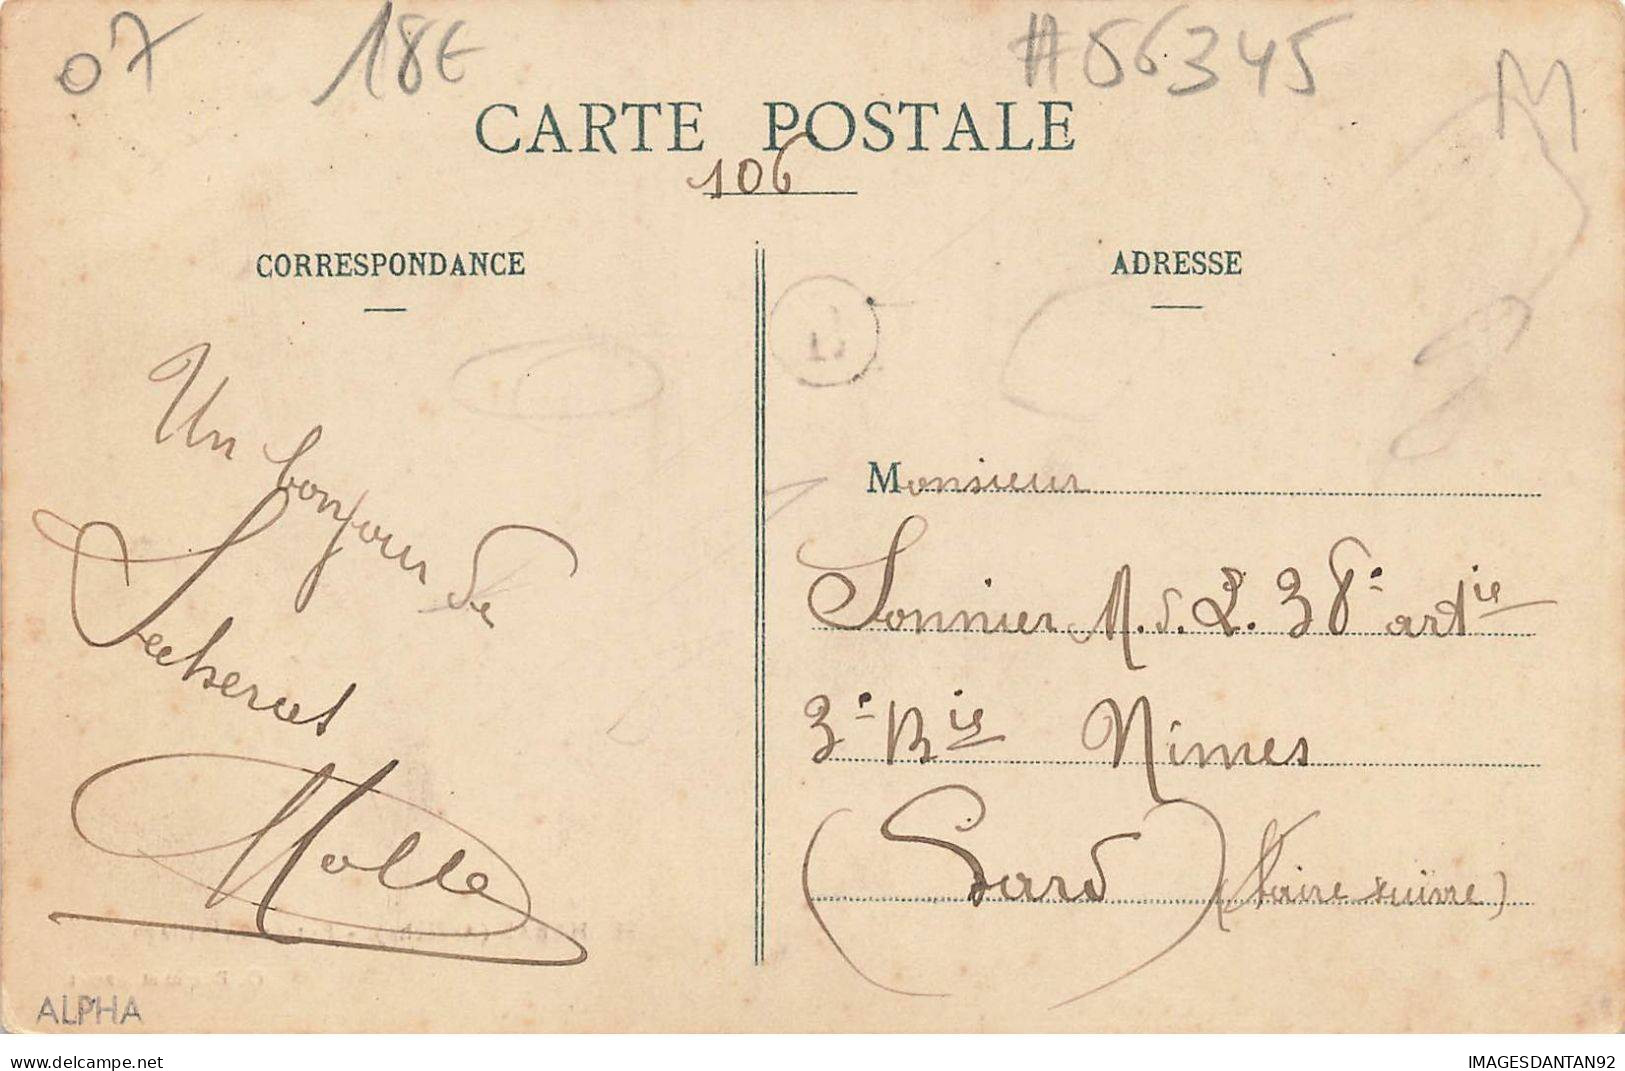 07 18€ #56345 M
CARTE POSTALE
106
CORRESPONDANCE
ADRESSE
Un bonjour de
Molle
Monsieur
Sonnier M. d. L. 38e artie
3e Bie Nimes
(Gard) (Faire suivre)
ALPHA
delcampe.net
IMAGESDANTAN92